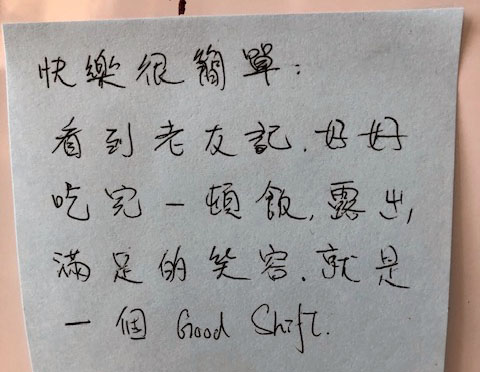 快樂很簡單:
看到老友記、好好
吃完一頓飯,露出,
滿足的笑容、就是
一個 Good Shift.